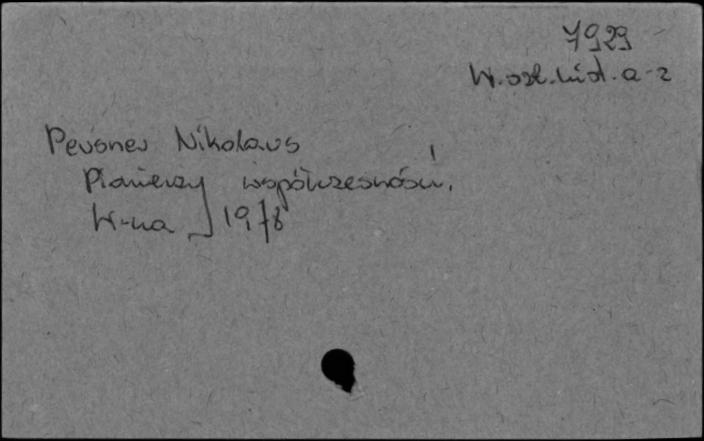 7929
W. szt. lud. a-z
Pevsner Nikolaus
Pionierzy współczesności.
W-wa 1978